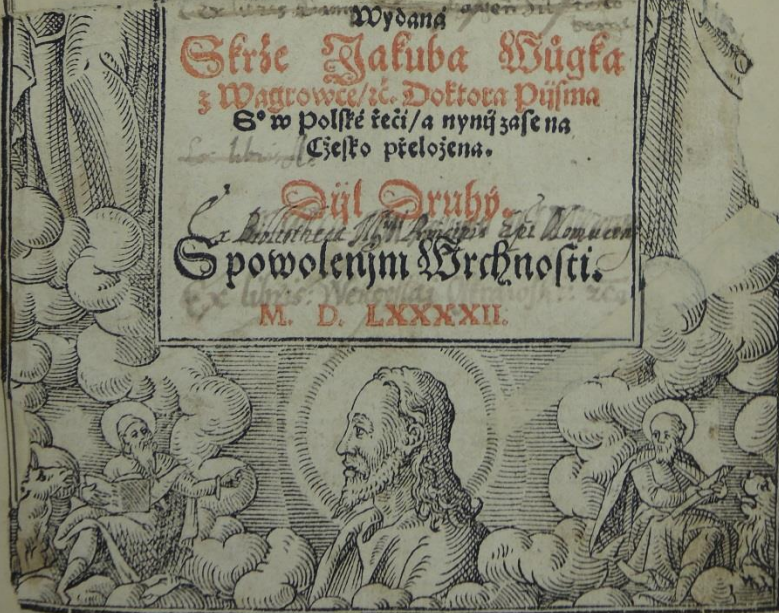 Wydaná
Skrže Jakuba Wůgka
z Wagrowce/ꝛč. Doktora Pijsma
S° w Polské řeči/a nynij zase na
Cžesko přeložena.
Dijl Druhý.
Ex Bibliotheca
S powolenjm Wrchnosti.
Ex libris
M. D. LXXXXII.